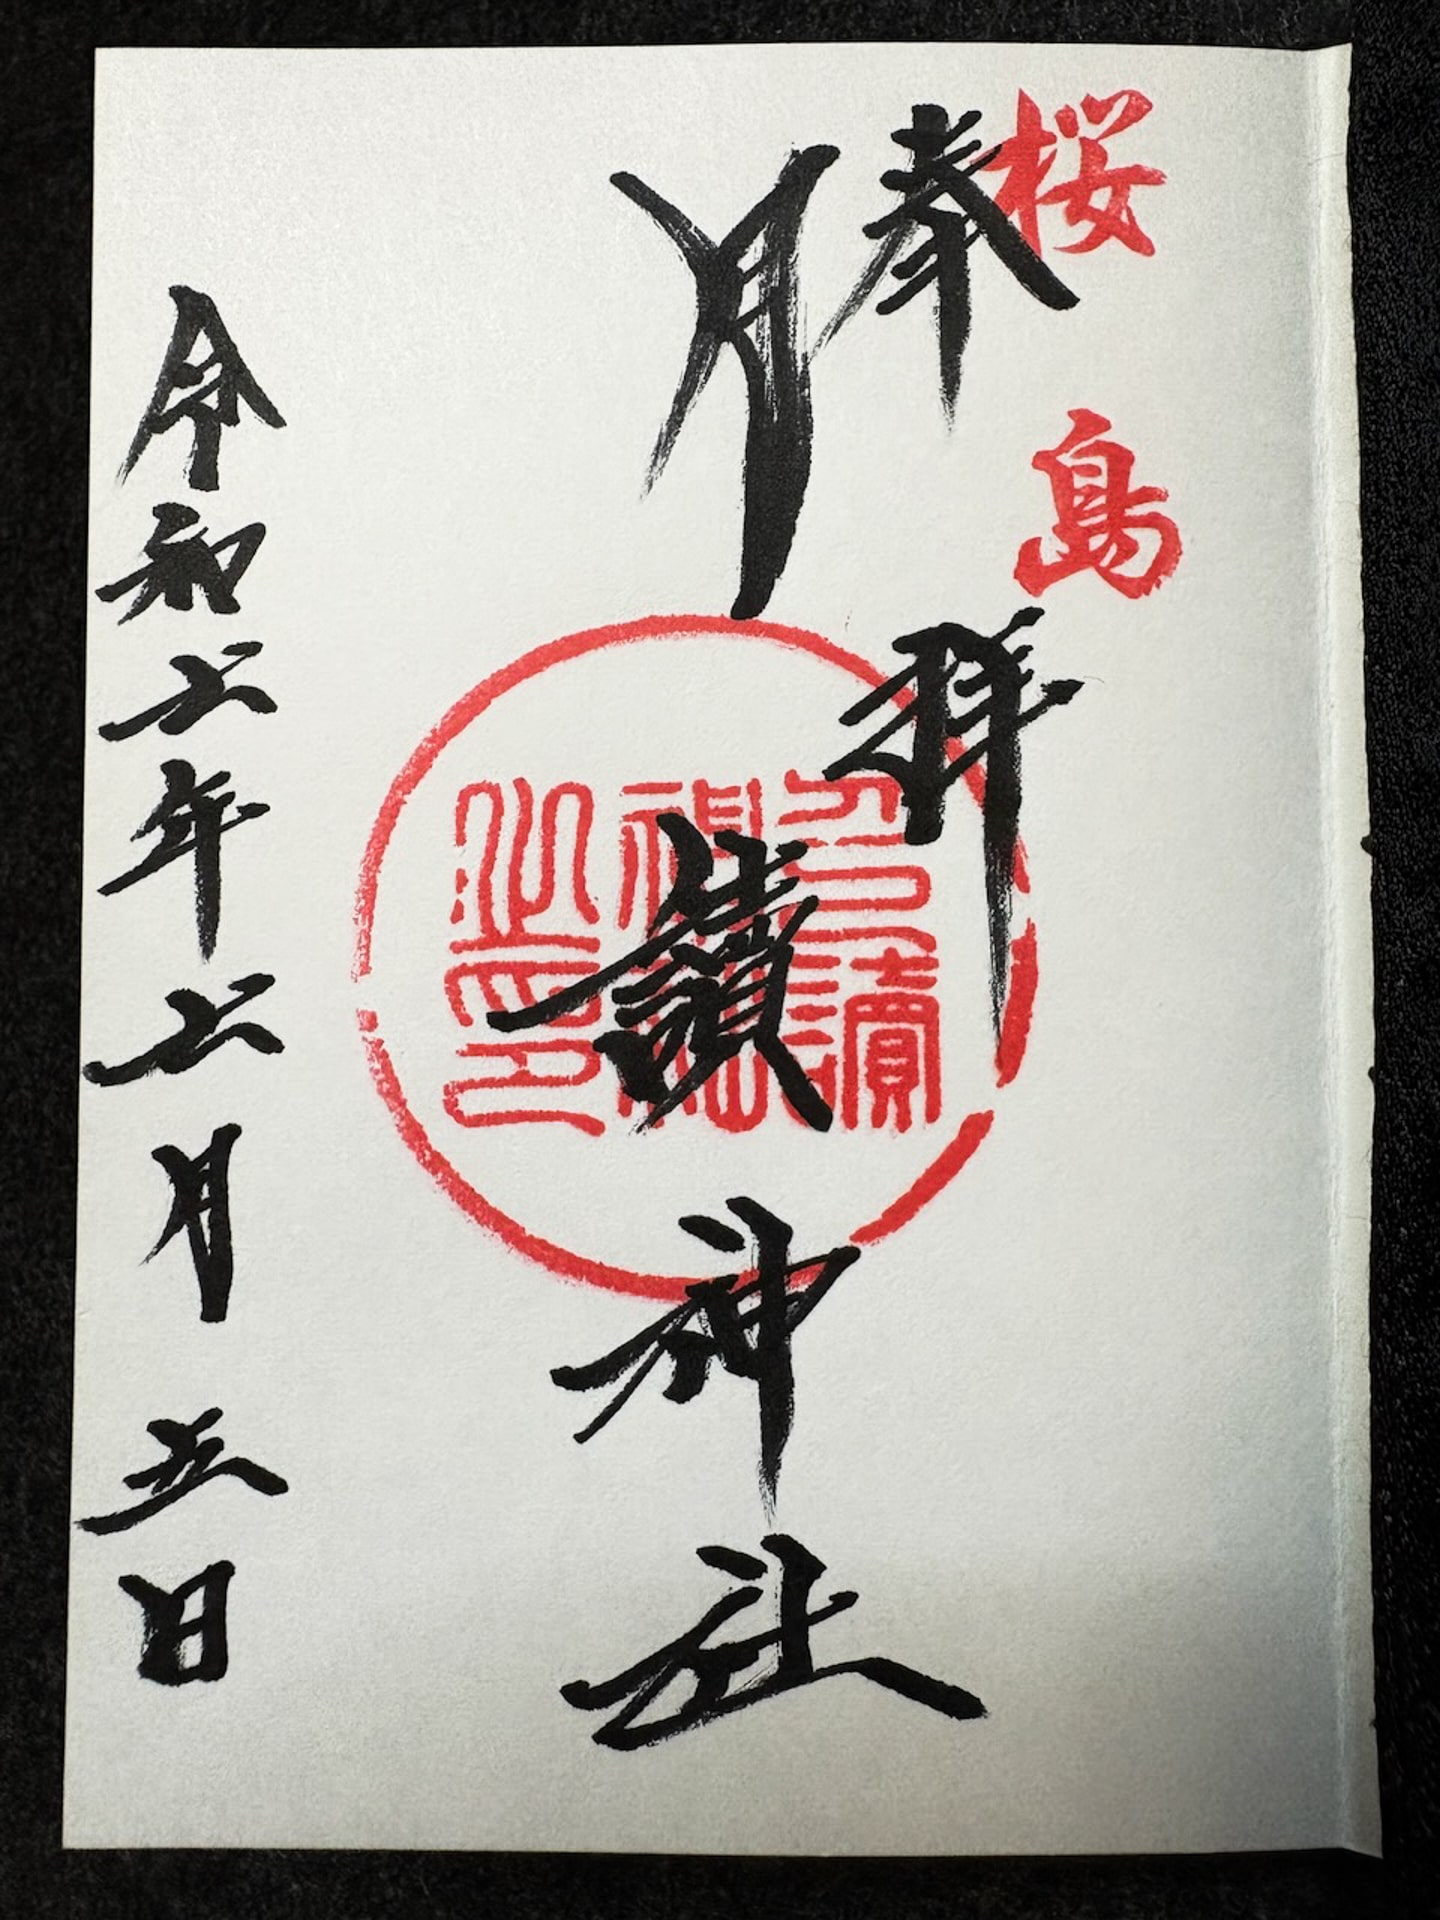 桜島
奉拝
月讀神社
月讀神社之印
令和
年
月五日